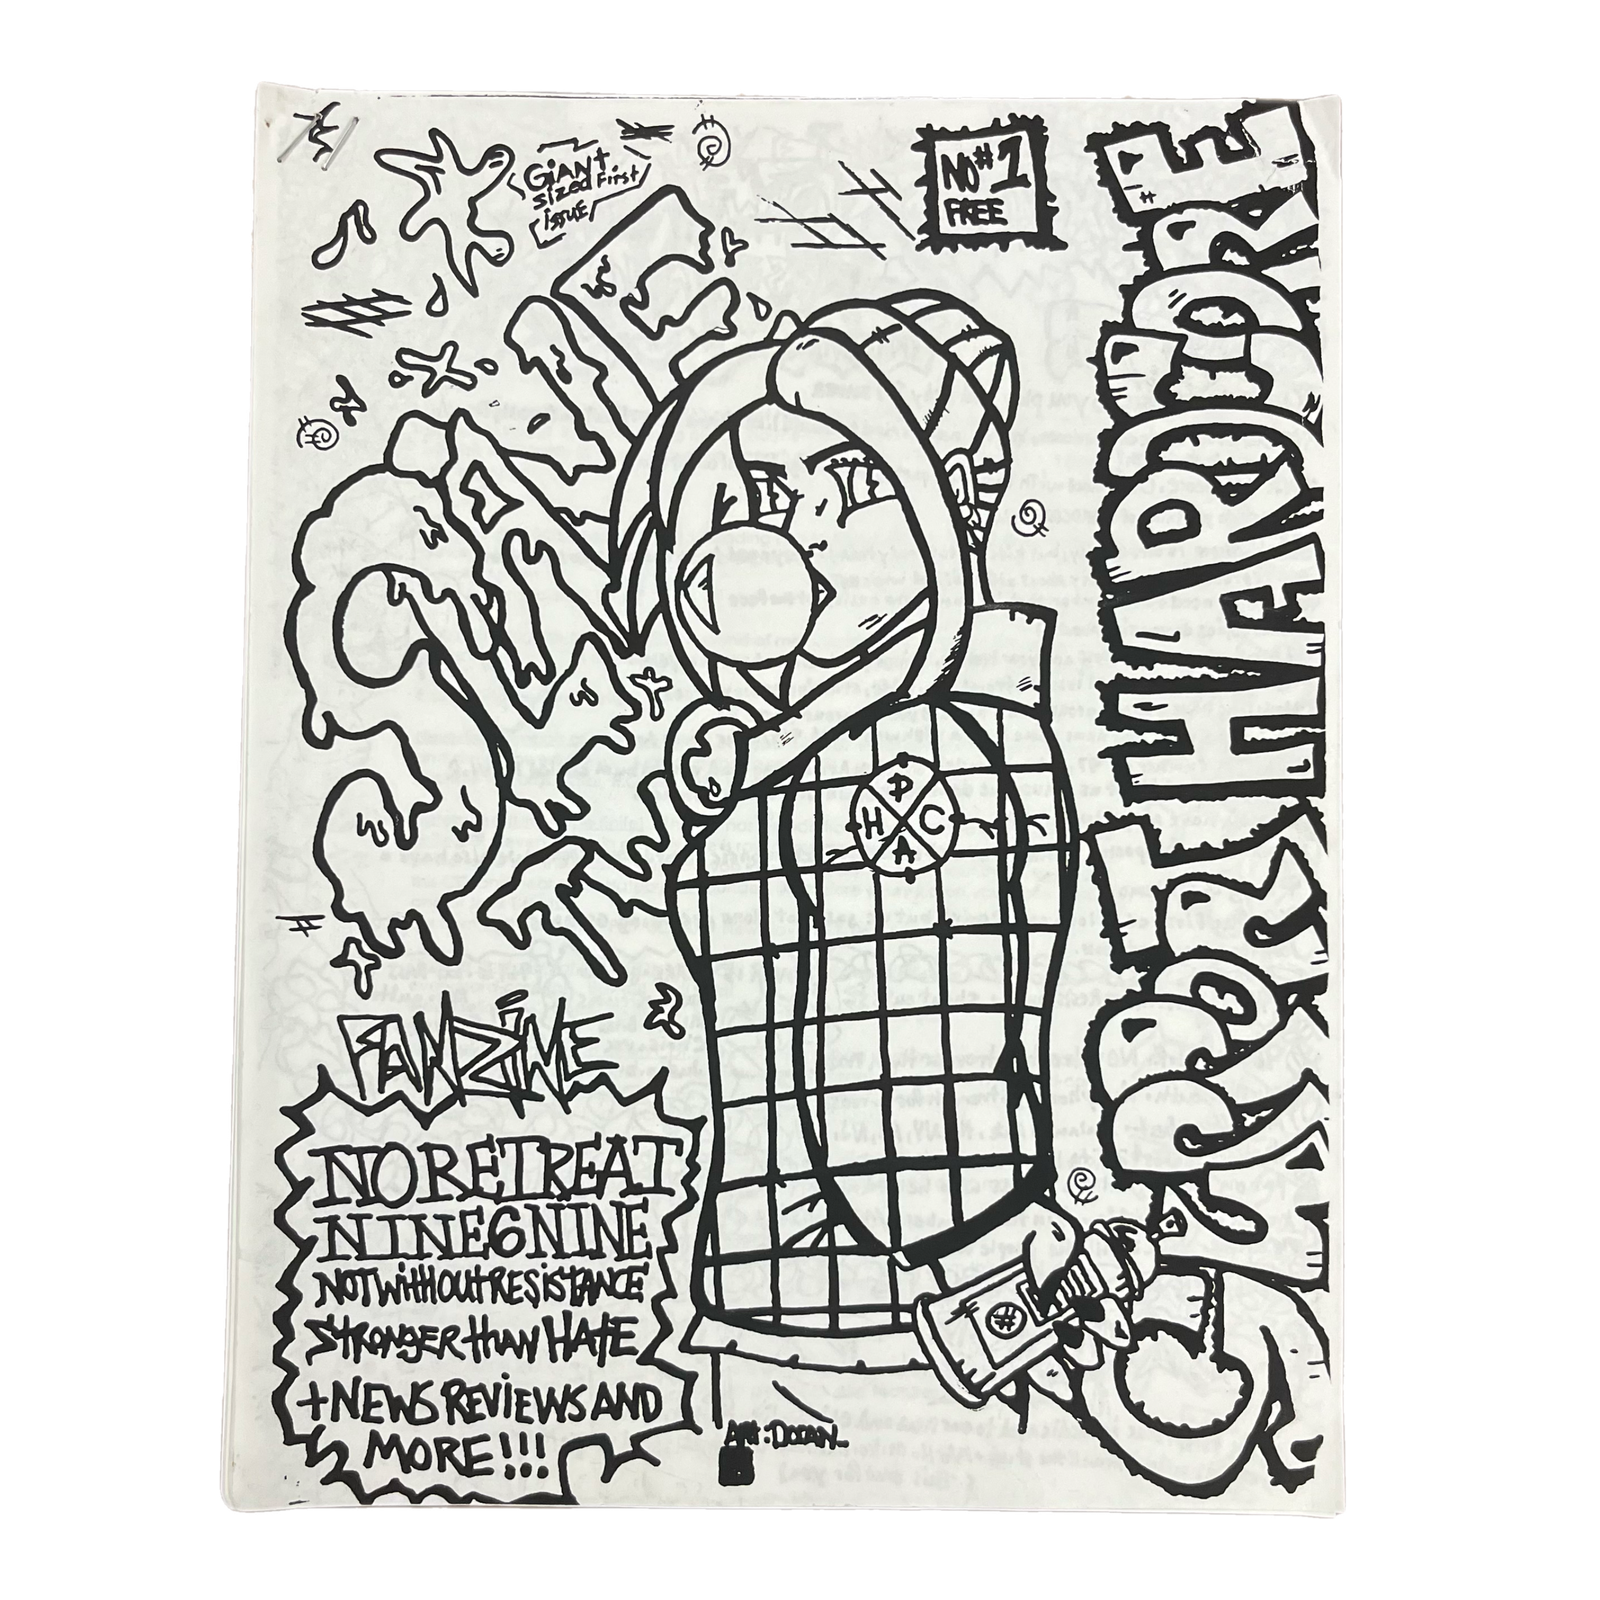 GiANt
sized First
issue
NO#1
FREE
HARDCORE
P
H C
A
FANZINE
NO RETREAT
NINE6NINE
NOT WithOUT RESiSTANCE
STRONGER thAN HATE
+ NEWS REViEWS AND
MORE!!!
Art: DORAN